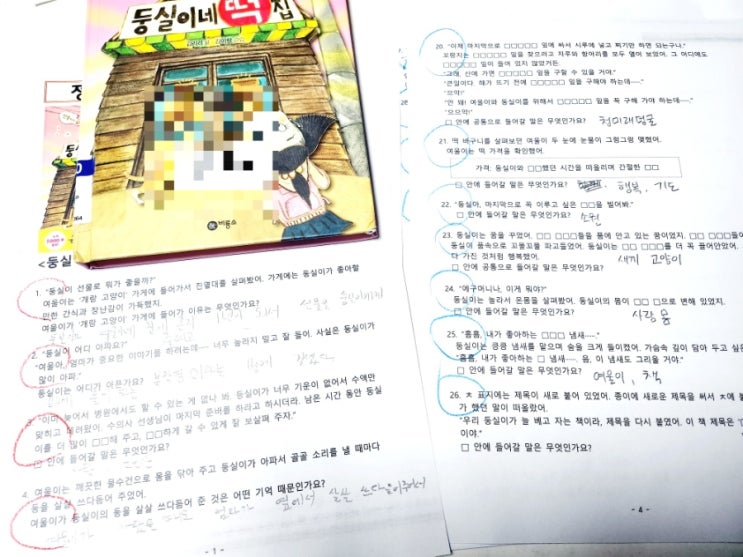 둥실이네 떡집
비룡소
<둥실
1. "둥실이 선물로 뭐가 좋을까?"
여울이는 '개랑 고양이' 가게에 들어가서 진열대를 살펴봤어. 가게에는 둥실이가 좋아할
만한 간식과 장난감이 가득했지.
여울이가 '개랑 고양이' 가게에 들어가 이유는 무엇인가요?
2. "둥실이 어디 아파요?"
"여울아, 엄마가 중요한 이야기를 하려는데…… 너무 놀라지 말고 잘 들어. 사실은 둥실이가
많이 아파."
둥실이는 어디가 아픈가요?
3. "이미 늦어서 병원에서도 할 수 있는 게 없나 봐. 둥실이가 너무 기운이 없어서 수액만
맞히고 데려왔다. 수의사 선생님이 마지막 준비를 하라고 하시더라. 남은 시간 동안 둥실
이를 더 많이 □□해 주고, □□하게 갈 수 있게 잘 보살펴 주자."
□ 안에 들어갈 말은 무엇인가요?
4. 여울이는 깨끗한 물수건으로 몸을 닦아 주고 둥실이가 아파서 골골 소리를 낼 때마다
등을 살살 쓰다듬어 주었어.
여울이가 둥실이의 등을 살살 쓰다듬어 준 것은 어떤 기억 때문인가요?
엄마가 옆에서 살살 쓰다듬어주어서
- 1 -
20. "이제 마지막으로 □□□□□ 잎에 싸서 시루에 넣고 찌기만 하면 되는구나."
꼬랑지는 □□□□□ 잎을 찾으려고 자루와 항아리를 모두 열어 보았어. 그 어디에도
□□□□□ 잎이 들어 있지 않았거든.
"그래, 산에 가면 □□□□□ 잎을 구할 수 있을 거야."
"큰일이다. 해가 뜨기 전에 □□□□□ 잎을 구해야 하는데……"
"으악!"
"안 돼! 여울이와 둥실이를 위해서 □□□□□ 잎을 꼭 구해 가야 하는데……"
"으으악!"
□ 안에 공통으로 들어갈 말은 무엇인가요? 청미래덩굴
21. 떡 바구니를 살펴보던 여울이 두 눈에 눈물이 그렁그렁 맺혔어.
여울이는 떡 가격을 확인했어.
가격: 둥실이와 □□했던 시간을 떠올리며 간절한 □□
□ 안에 들어갈 말은 무엇인가요? 행복, 기도
22. "둥실아, 마지막으로 꼭 이루고 싶은 □□을 빌어봐."
□ 안에 들어갈 말은 무엇인가요? 소원
23. 둥실이는 꿈을 꾸었어. □□ □□□들을 품에 안고 있는 꿈이었지. □□ □□□들이
둥실이 품속으로 꼬물꼬물 파고들었어. 둥실이는 □□ □□□를 더 꼭 끌어안았어.
다 가진 것처럼 행복했어.
□ 안에 공통으로 들어갈 말은 무엇인가요? 새끼 고양이
24. "에구머니나, 이게 뭐야?"
둥실이는 놀라서 온몸을 살펴봤어. 둥실이의 몸이 □□ □으로 변해 있었지.
□ 안에 들어갈 말은 무엇인가요? 사람 몸
25. "흠흠, 내가 좋아하는 □□ 냄새……"
둥실이는 킁킁 냄새를 맡으며 숨을 크게 들이켰어. 가슴속 깊이 담아 두고 싶은
"흠흠, 내가 좋아하는 □ 냄새…… 음, 이 냄새도 그리울 거야."
□ 안에 들어갈 말은 무엇인가요? 여울이, 책
26. 책 표지에는 제목이 새로 붙어 있었어. 종이에 새로운 제목을 써서 책에 붙
가 했던 말이 떠올랐어.
"우리 둥실이가 늘 베고 자는 책이라, 제목을 다시 붙였어. 이 책 제목은
이야."
□ 안에 들어갈 말은 무엇인가요?
- 4 -